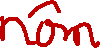 nôm